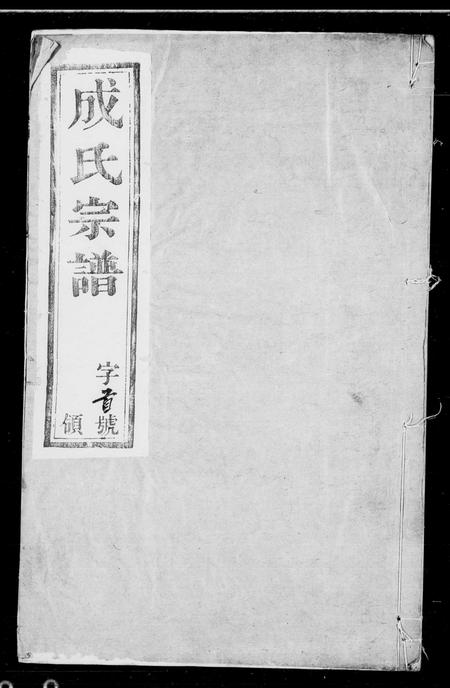 成氏宗譜
字首號
領